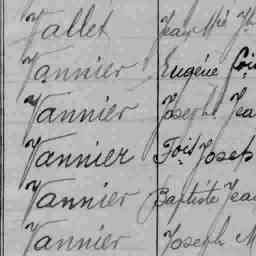 Vallet Jean Mie
Vannier Eugène Loui
Vannier Joseph Jea
Vannier Fois Josep
Vannier Baptiste Jean
Vannier Joseph M